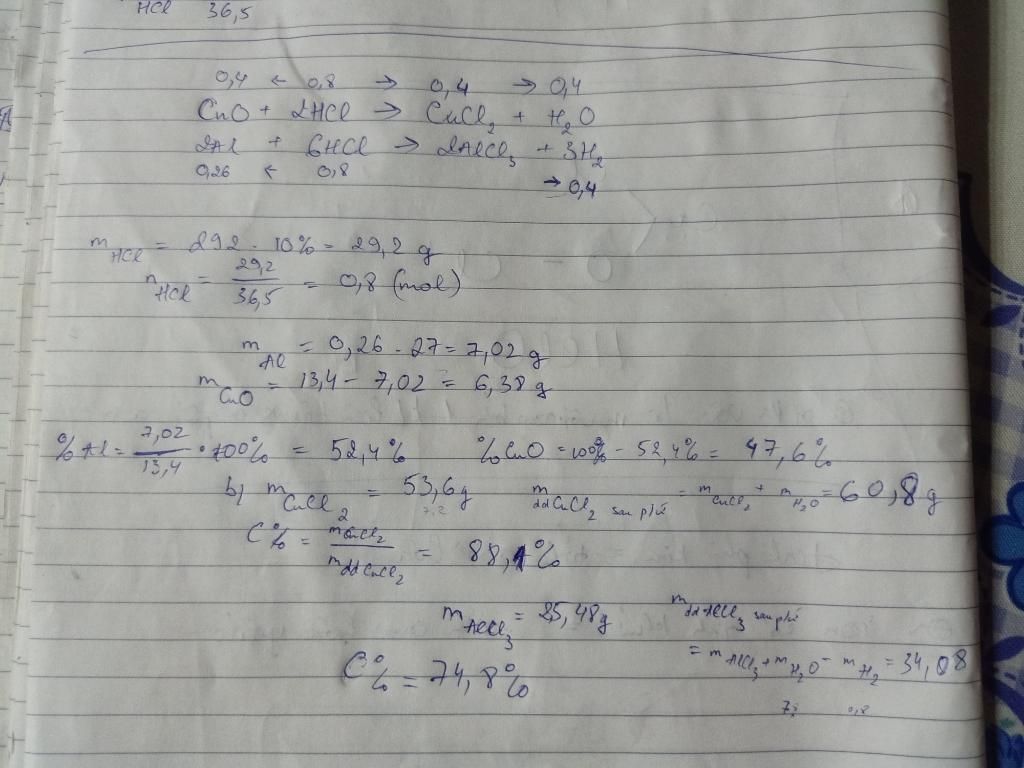 HCl 36,5
0,4 ← 0,8 → 0,4 → 0,4
CuO + 2HCl → CuCl₂ + H₂O
2Al + 6HCl → 2AlCl₃ + 3H₂
0,26 ← 0,8 → 0,4
m HCl = 292 . 10% = 29,2 g
n HCl = 29,2 / 36,5 = 0,8 (mol)
m Al = 0,26 . 27 = 7,02 g
m CuO = 13,4 - 7,02 = 6,38 g
% Al = 7,02 / 13,4 . 100% = 52,4% % CuO = 100% - 52,4% = 47,6%
b) m CuCl₂ = 53,6 g m ddCuCl₂ sau pứ = m CuCl₂ + m H₂O = 60,8 g
7,2
C% = m CuCl₂ / m ddCuCl₂ = 88,1%
m AlCl₃ = 25,48 g m ddAlCl₃ sau pứ
= m AlCl₃ + m H₂O - m H₂ = 34,08
C% = 74,8%
0,8